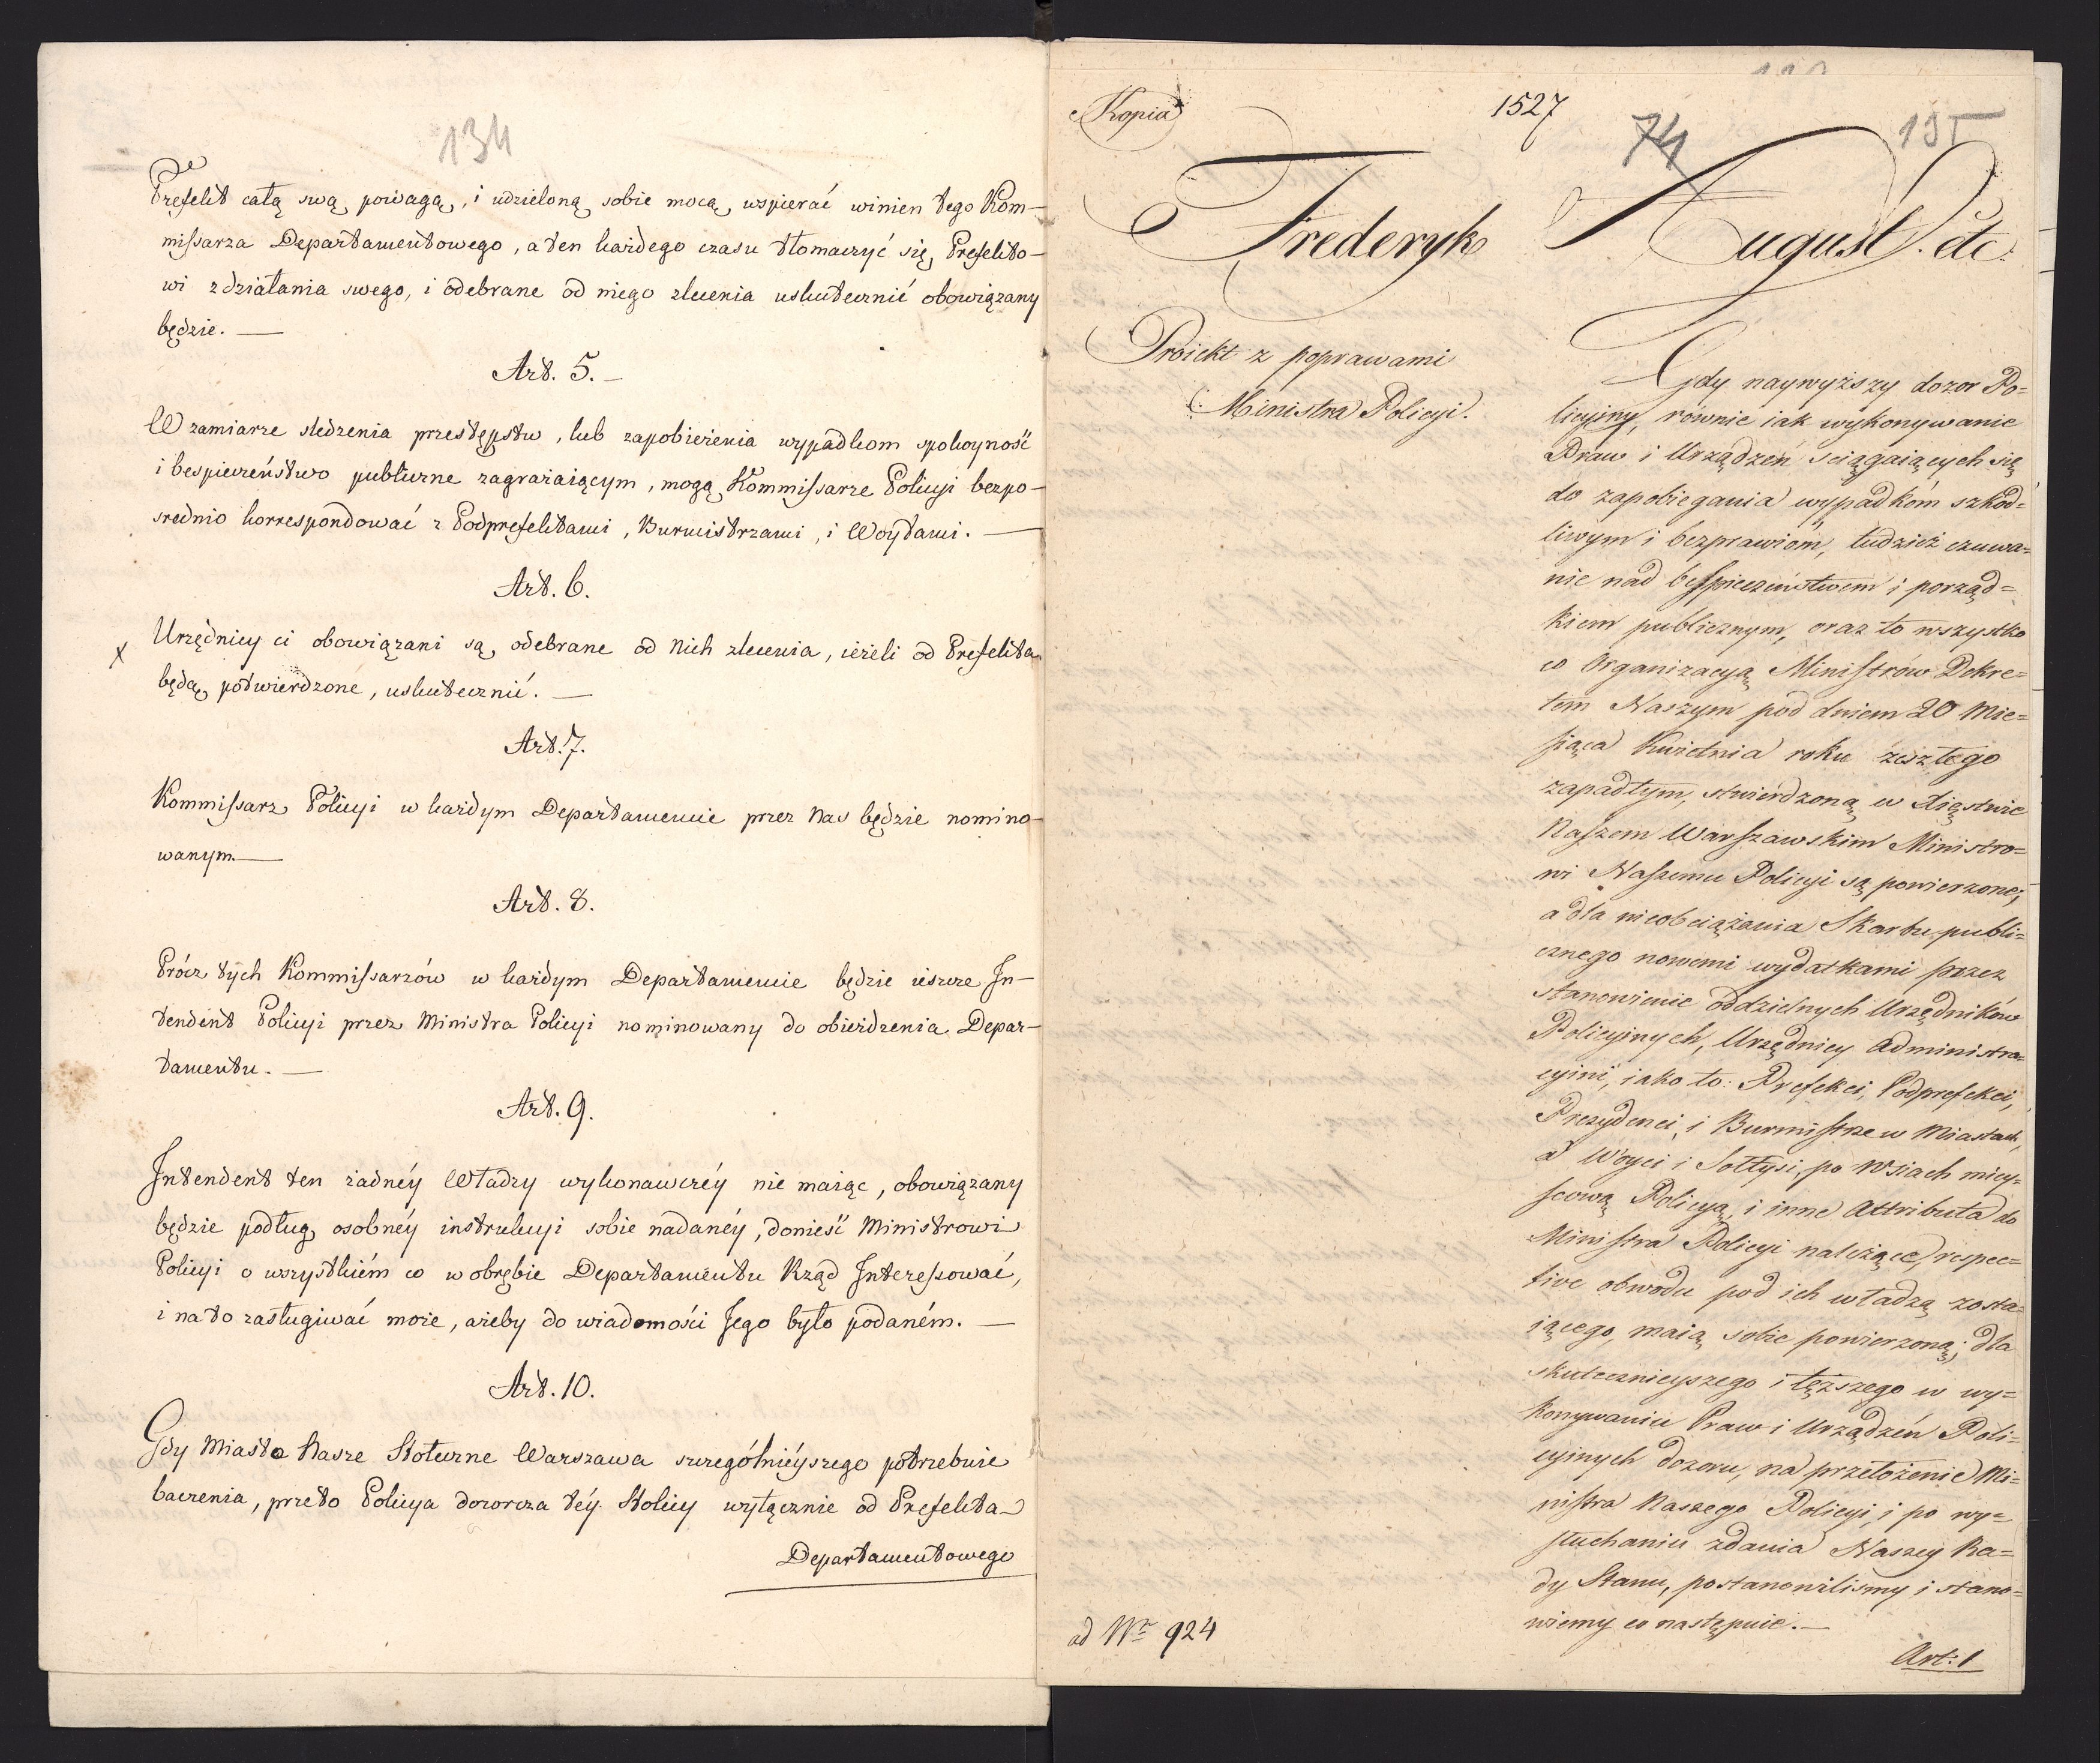 134
Prefekt całą swą powagą, i udzieloną sobie mocą, wspierać winien tego Kom-
missarza Departamentowego, a ten każdego czasu tłomaczyć się Prefekto-
wi z działania swego, i odebrane od niego zlecenia uskutecznić obowiązany
będzie. —
Art. 5. —
W zamiarze śledzenia przestępstw, lub zapobieżenia wypadkom spokoyność
i bespieczeństwo publiczne zagrażaiącym, mogą Kommissarze Policyi bezpo-
srednio korrespondować z Podprefektami, Burmistrzami, i Woytami. —
Art. 6.
x Urzędnicy ci obowiązani są, odebrane od nich zlecenia, ieżeli od Prefekta
będą potwierdzone, uskutecznić. —
Art. 7.
Kommissarz Policyi w każdym Departamencie przez Nas będzie nomino-
wanym. —
Art. 8.
Prócz tych Kommissarzów w każdym Departamencie będzie ieszcze In-
tendent Policyi przez Ministra Policyi nominowany do obieżdzenia Depar-
tamentu. —
Art. 9.
Intendent ten żadnéy Władzy wykonawczéy nie maiąc, obowiązany
będzie podług osobnéy instrukcyi sobie nadanéy, donieść Ministrowi
Policyi o wszystkiém co w obrębie Departamentu Rząd Interessować,
i na to zasługiwać może, ażeby do wiadomości Jego było podaném. —
Art. 10.
Gdy Miasto Nasze Stołeczne Warszawa szczególniéyszego potrzebuie
baczenia, przeto Policya dozorcza téy Stolicy wyłącznie od Prefekta
Departamentowego
Kopia
1527
74
135
Frederyk August. etc.
Proiekt z poprawami
Ministra Policyi.
Gdy naywyższy dozor Po=
licyiny, równie iak wykonywanie
Praw i Urządzeń sciągaiących się
do zapobiegania wypadkóm szkod=
liwym i bezprawióm, tudzież czuwa=
nie nad bespieczeństwem i porząd=
kiem publicznym, oraz to wszystko
co Organizacyą Ministrów Dekre=
tem Naszym pod dniem 20 Mie=
siąca Kwietnia roku zeszłego
zapadłym, stwierdzoną w Xięstwie
Naszem Warszawskim Ministro=
wi Naszemu Policyi są powierzone;
a dla nieobciążania Skarbu publi=
cznego nowemi wydatkami przez
stanowienie oddzielnych Urzędników
Policyinych, Urzędnicy Administra=
cyini, iako to: Prefekci, Podprefekci,
Prezydenci, i Burmistrze w Miastach,
a Woyci i Sołtysi, po Wsiach miey=
scową Policyą, i inne Attributa do
Ministra Policyi należące, respec=
tive obwodu pod ich władzą zosta=
iącego, maią sobie powierzoną; dla
skutecznieyszego i tęższego w wy=
konywaniu Praw i Urządzeń Poli=
cyinych dozoru, na przełożenie Mi=
nistra Naszego Policyi, i po wy=
słuchaniu zdania Naszey Ra=
dy Stanu, postanowiliśmy i stano=
wiemy co następuie. —
Art: 1
ad Nr 924